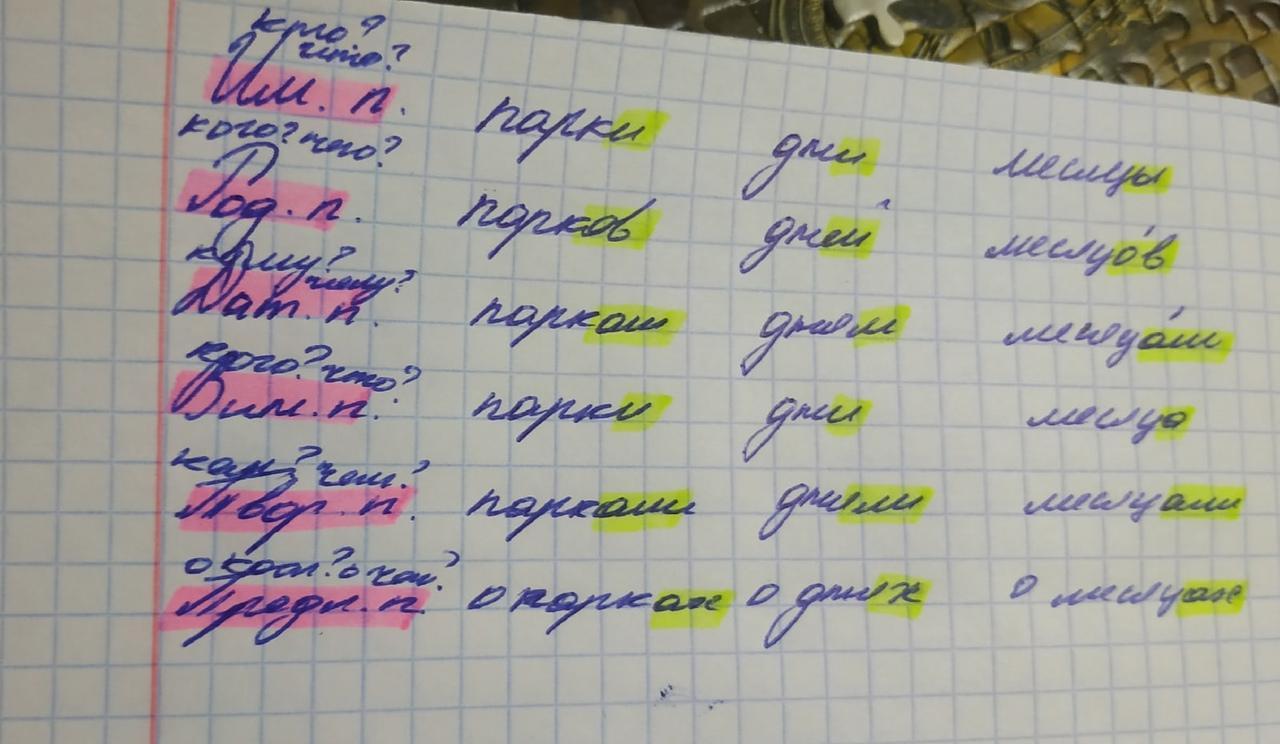 кто?
что?
Им. п. парки дни месяцы
кого? чего?
Род. п. парков дней месяцо́в
кому?
чему?
Дат. п. паркам днем месяца́м
кого? что?
Вин. п. парки дни месяца
кем? чем?
Твор. п. парками днями месяцами
о ком? о чём?
Предл. п. о парках о днях о месяцах